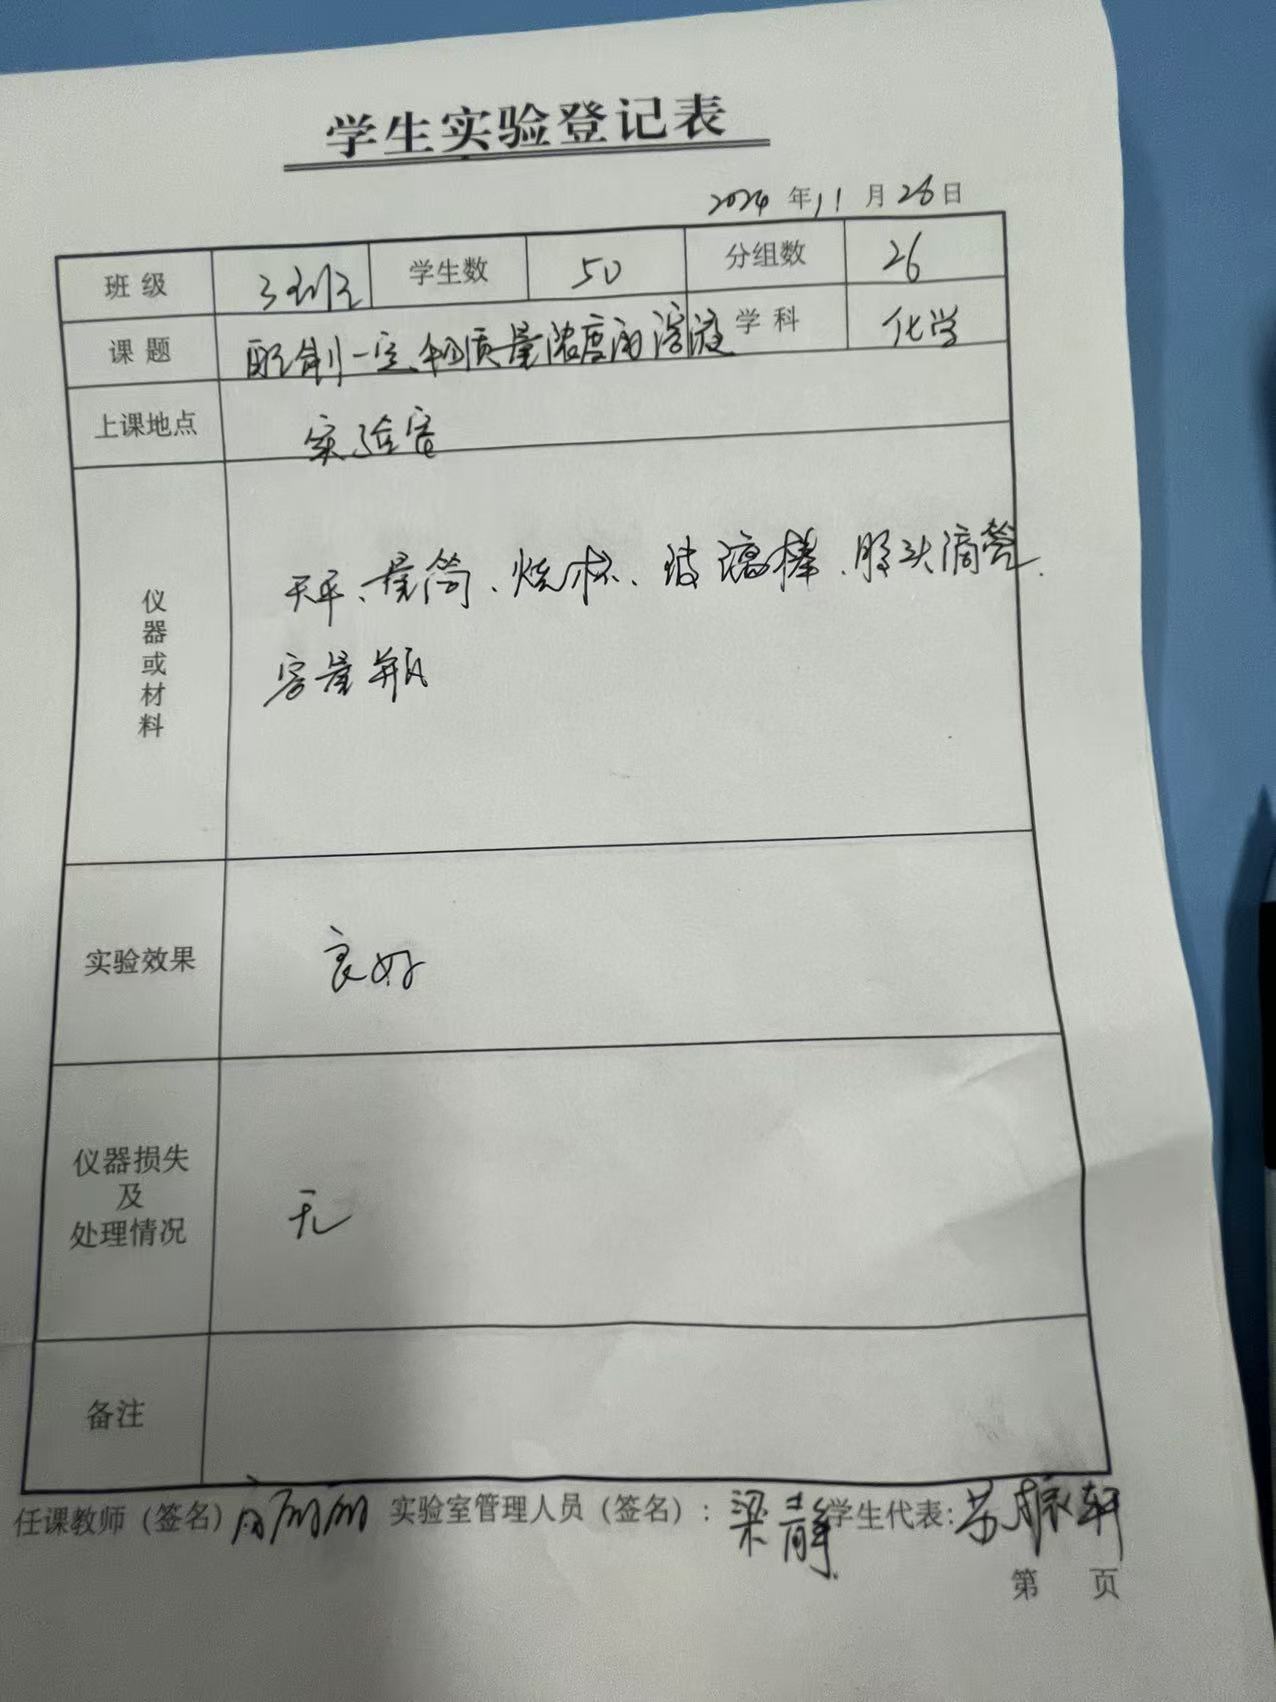 学生实验登记表
2024 年 11 月 26 日
班级 学生数 50 分组数 26
课题 配制一定物质量浓度的溶液 学科 化学
上课地点 实验室
仪器或材料 天平、量筒、烧杯、玻璃棒、胶头滴管、
容量瓶
实验效果 良好
仪器损失及处理情况 无
备注
任课教师（签名） 实验室管理人员（签名）：梁静 学生代表：苏 轩
第 页